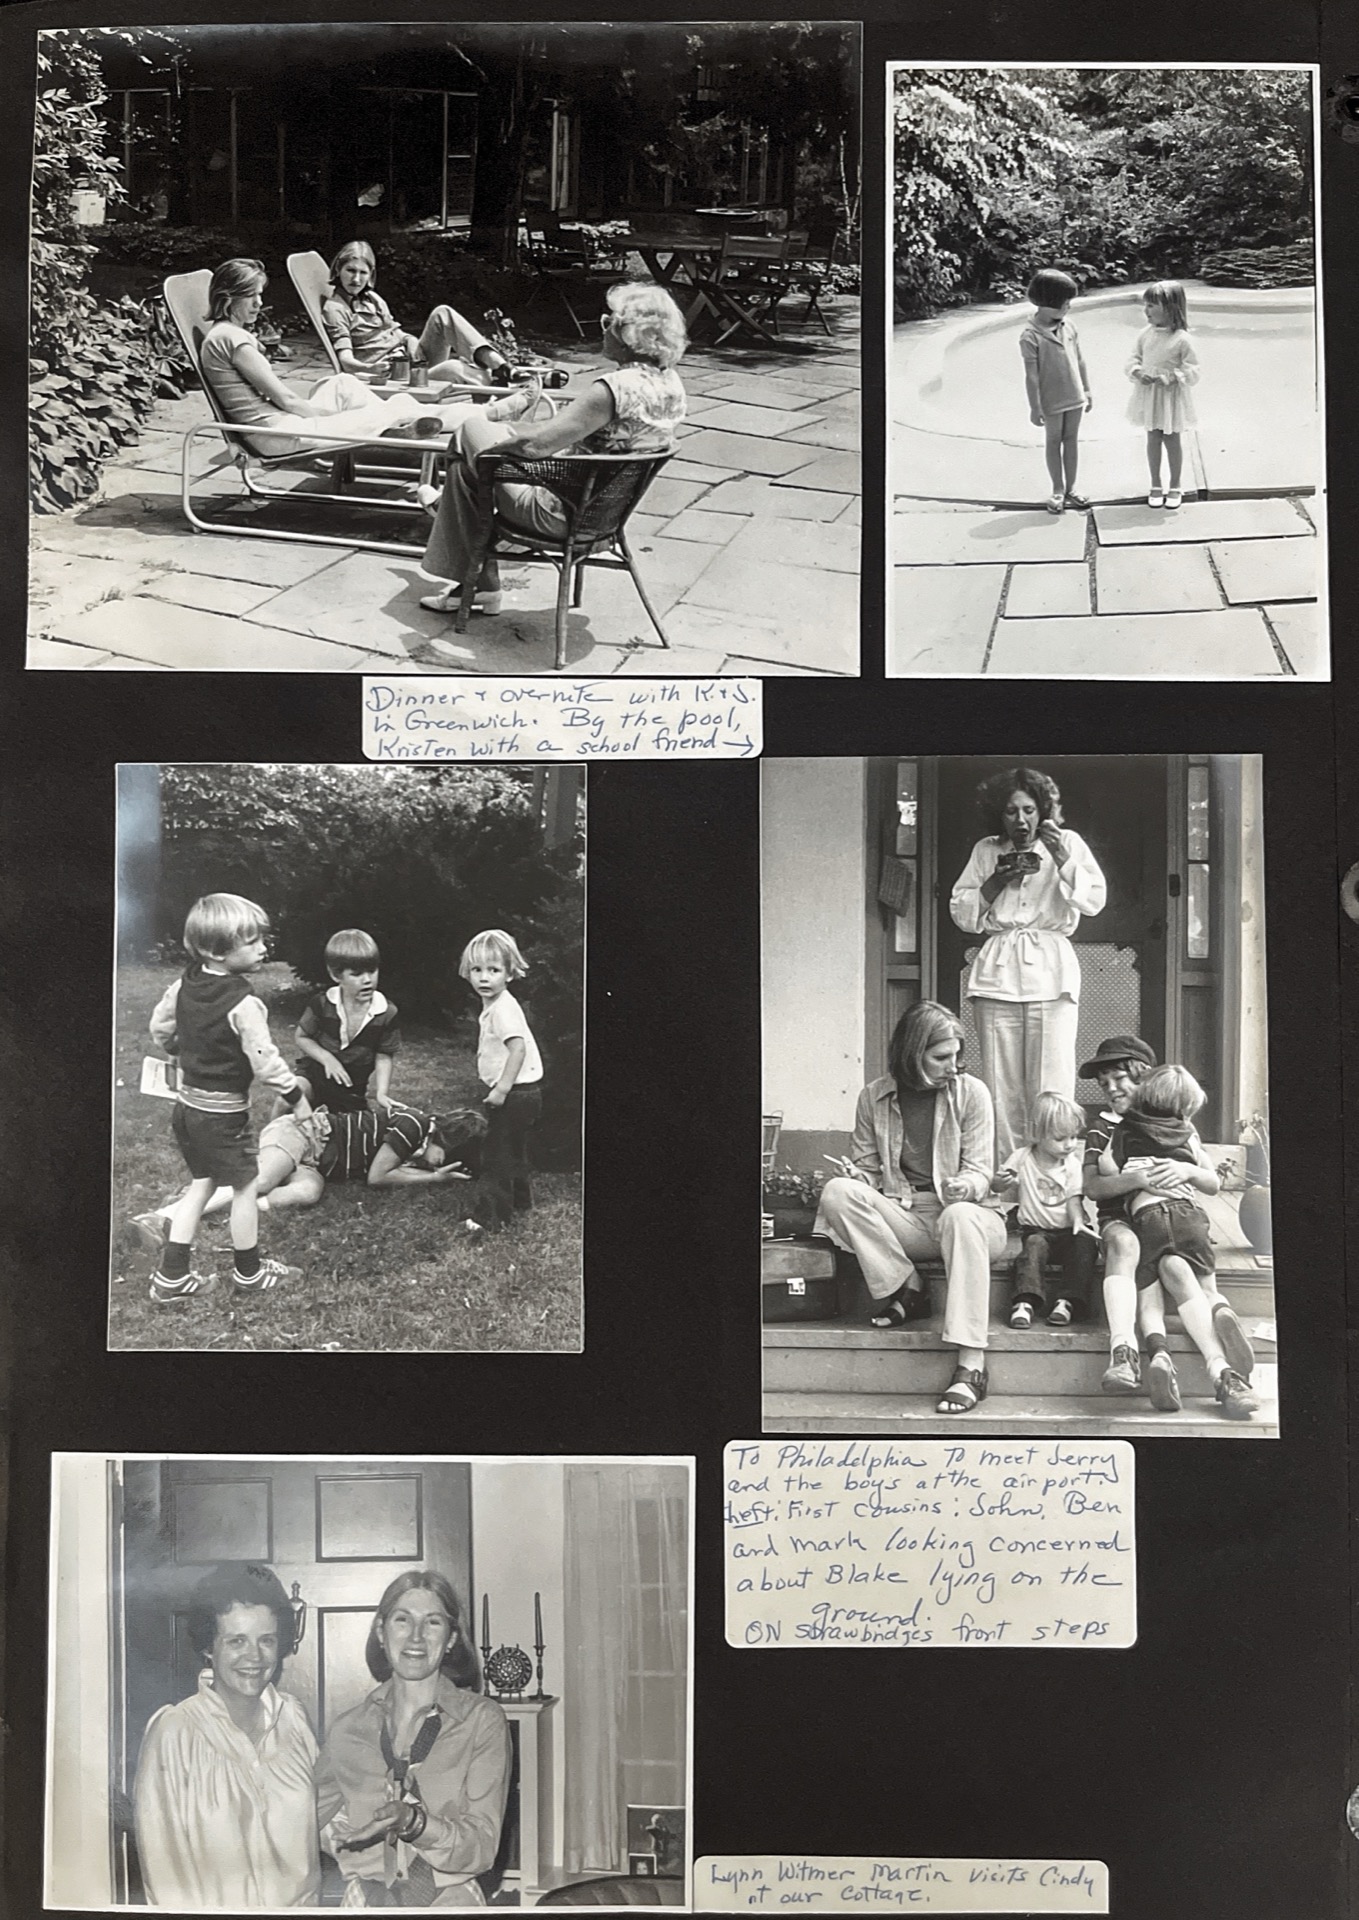 Dinner + overnite with K. + J.
in Greenwich. By the pool,
Kristen with a school friend →
To Philadelphia to meet Jerry
and the boys at the airport.
Left: First Cousins: John, Ben
and Mark looking concerned
about Blake lying on the
ground.
ON Strawbridges front steps
Lynn Witmer Martin visits Cindy
at our Cottage.